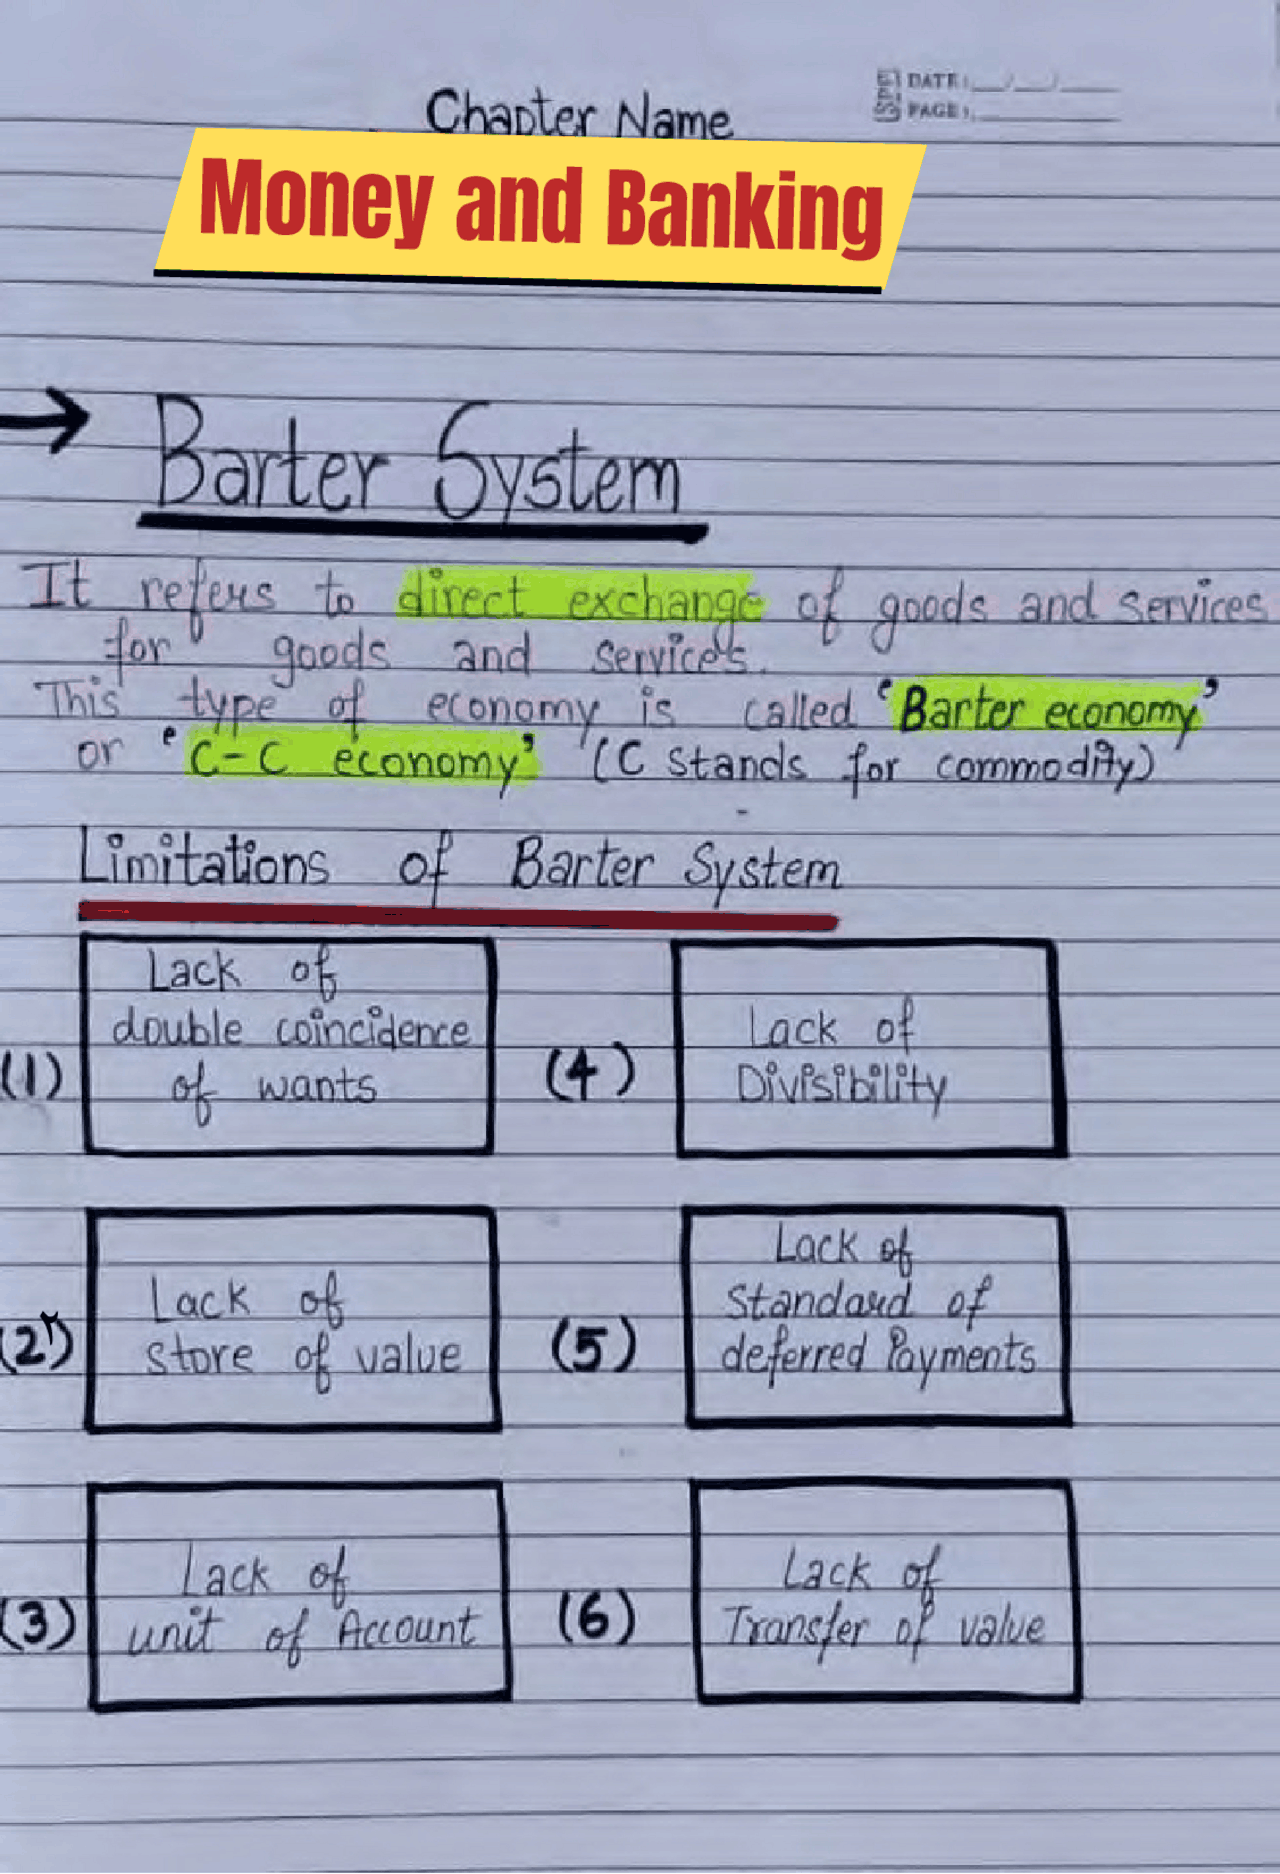 Chapter Name
SPL DATE: __/__/____
PAGE: ________
Money and Banking
→ Barter System
It refers to direct exchange of goods and services
for goods and services.
This type of economy is called 'Barter economy'
or 'C-C economy' (C stands for commodity)
Limitations of Barter System
(1) Lack of
double coincidence
of wants
(4) Lack of
Divisibility
(2) Lack of
store of value
(5) Lack of
Standard of
deferred Payments
(3) Lack of
unit of Account
(6) Lack of
Transfer of value